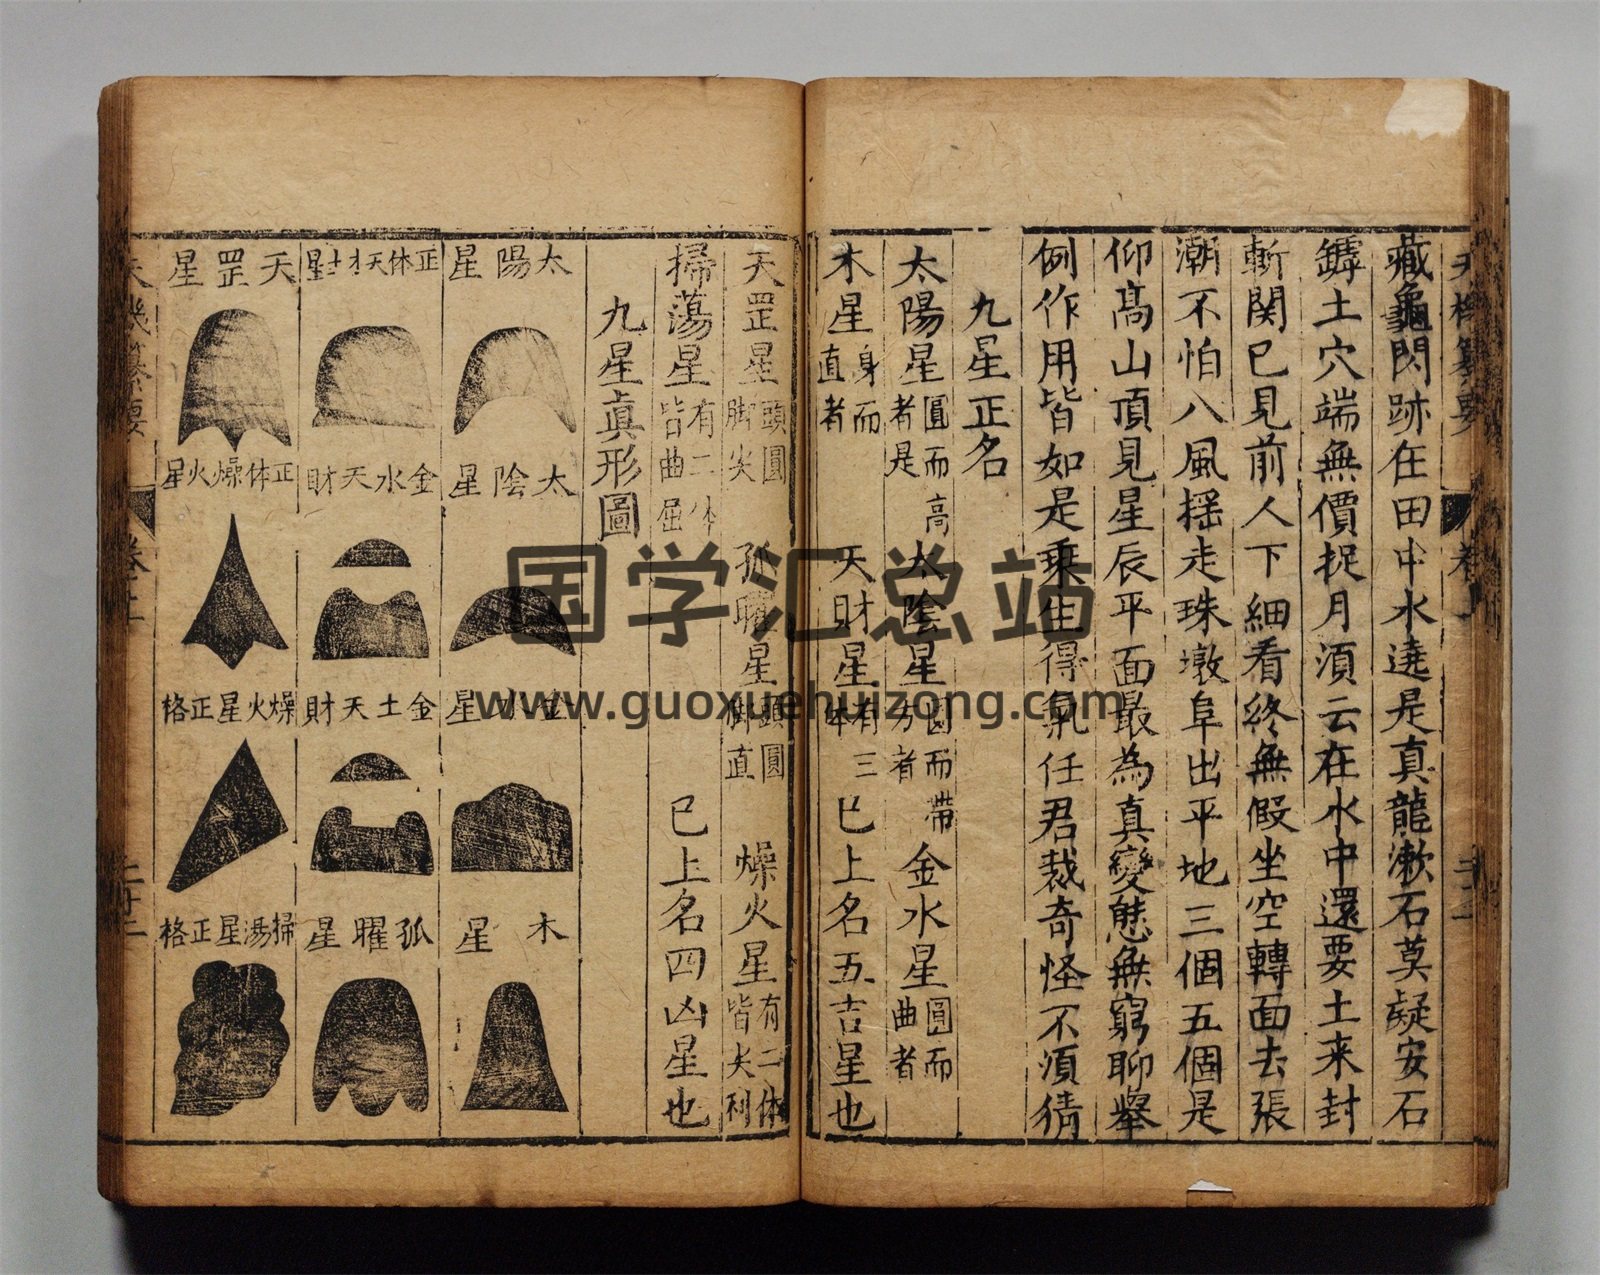 藏龜閃跡在田中水遶是真龍漱石莫疑安石
鑄土穴端無價捉月須云在水中還要土来封
斬関已見前人下細看終無假坐空轉面去張
潮不怕八風揺走珠墩阜出平地三個五個是
仰高山頂見星辰平面最為真變態無窮聊舉
例作用皆如是乗生得氣任君裁奇怪不須猜
九星正名
太陽星圓而高者是 太陰星圓而帶方者 金水星圓而曲者
木星身而直者 天財星有三体 已上名五吉星也
天罡星頭圓脚尖 孤曜星頭圓脚直 燥火星有二体皆尖利
掃蕩星有二体皆曲屈 已上名四凶星也
九星真形圖
太陽星
太陰星
金水星
木星
正体天才星
金水天財
金土天財
孤曜星
天罡星
正体燥火星
燥火星正格
掃湯星正格
天機纂要
国学汇总站
www.guoxuehuizong.com